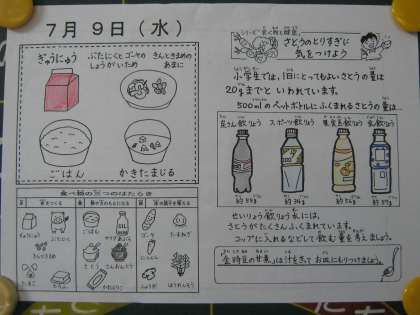 7月 9日（水）
ぎゅうにゅう
ぶたにくとゴーヤの
しょうがいため
きんときまめの
あまに
ごはん
かきたまじる
食べ物の三つのはたらき
さとうのとりすぎに
気をつけよう
小学生では、1日にとってもよいさとうの量は
20gまでと いわれています。
500mlのペットボトルにふくまれるさとうの量は…
炭さん飲りょう
スポーツ飲りょう
果実系飲りょう
乳飲りょう
せいりょう飲りょう水には、
さとうがたくさんふくまれています。
コップに入れるなどして飲む量を考えましょう。
ぎゅうにゅう
ぶたにく
きんときまめ
たまご
ごはん
さとう
ゴーヤ
たまねぎ
にんじん
ほうれんそう
「金時豆の甘煮」は汁をきってお皿にもりつけましょう。